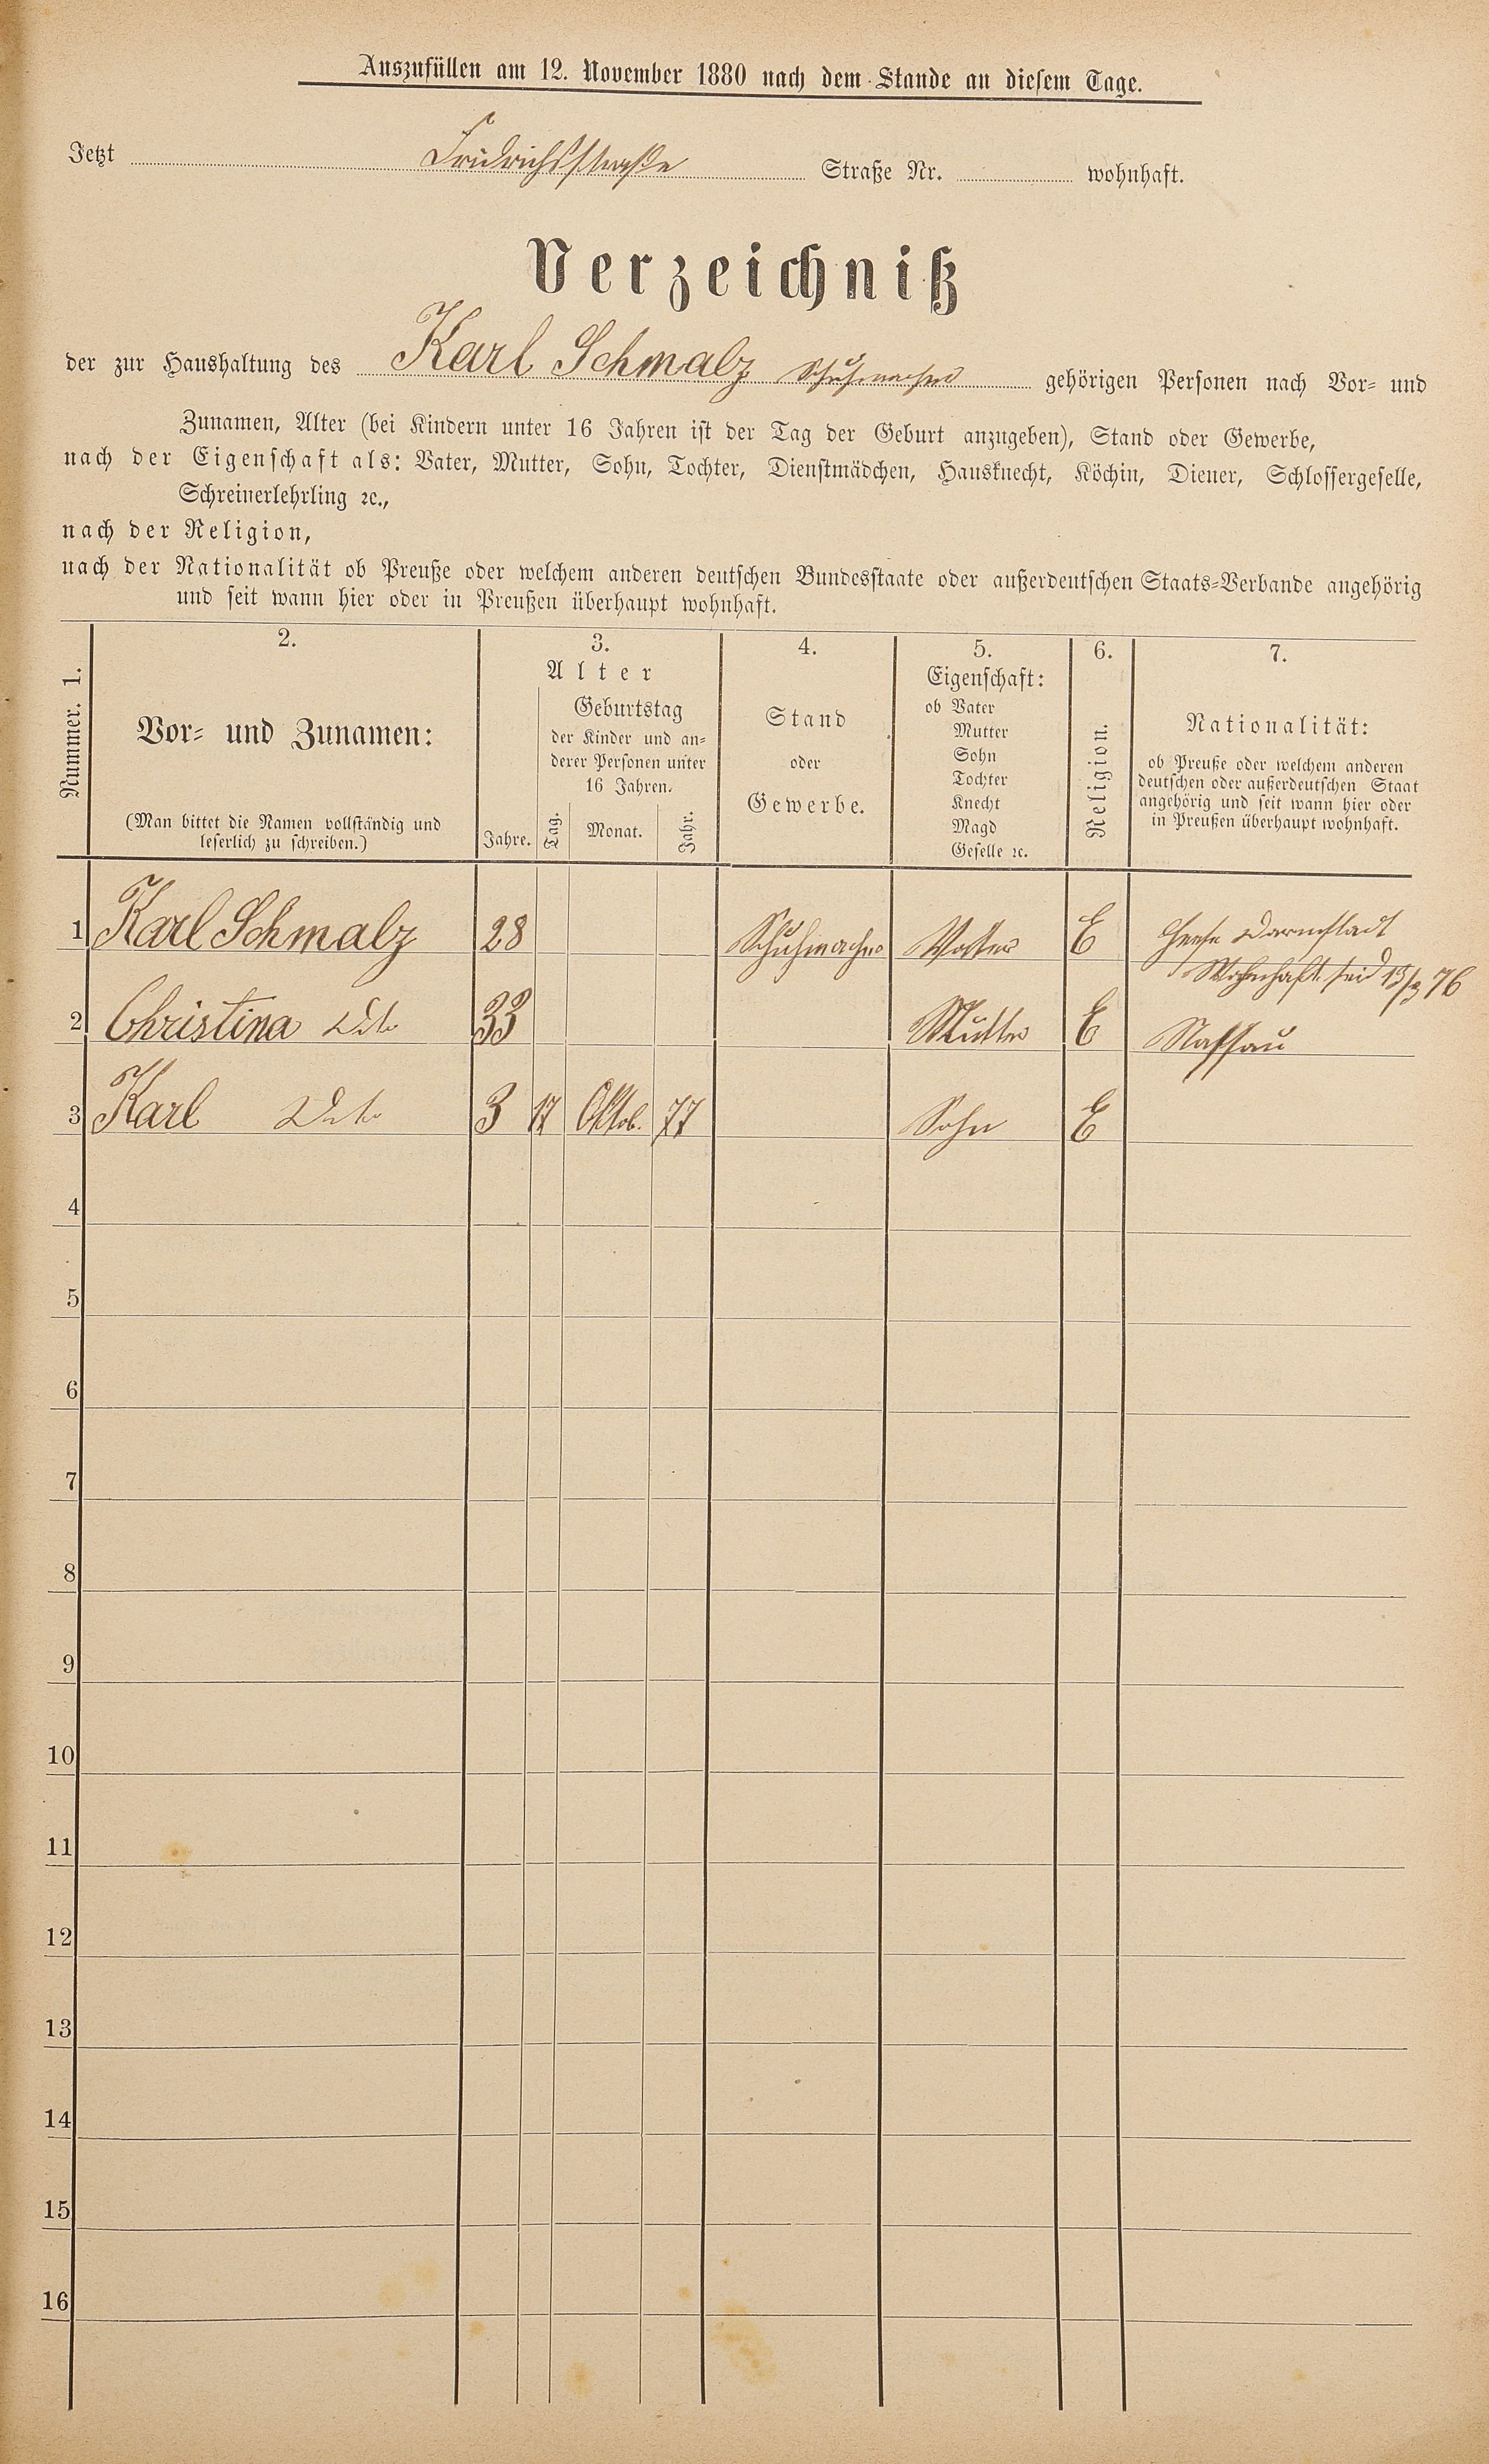 Auszufüllen am 12. November 1880 nach dem Stande an diesem Tage.
Jetzt Fridrichsstraße Straße Nr. wohnhaft.
Verzeichniß
der zur Haushaltung des Karl Schmalz Schuhmacher gehörigen Personen nach Vor- und
Zunamen, Alter (bei Kindern unter 16 Jahren ist der Tag der Geburt anzugeben), Stand oder Gewerbe,
nach der Eigenschaft als: Vater, Mutter, Sohn, Tochter, Dienstmädchen, Hausknecht, Köchin, Diener, Schlossergeselle,
Schreinerlehrling ꝛc.,
nach der Religion,
nach der Nationalität ob Preuße oder welchem anderen deutschen Bundesstaate oder außerdeutschen Staats-Verbande angehörig
und seit wann hier oder in Preußen überhaupt wohnhaft.
Nummer. 1.
2.
Vor- und Zunamen:
(Man bittet die Namen vollständig und
leserlich zu schreiben.)
3.
Alter
Jahre.
Geburtstag
der Kinder und an-
derer Personen unter
16 Jahren.
Tag. Monat. Jahr.
4.
Stand
oder
Gewerbe.
5.
Eigenschaft:
ob Vater
Mutter
Sohn
Tochter
Knecht
Magd
Geselle ꝛc.
6.
Religion.
7.
Nationalität:
ob Preuße oder welchem anderen
deutschen oder außerdeutschen Staat
angehörig und seit wann hier oder
in Preußen überhaupt wohnhaft.
1 Karl Schmalz 28 Schuhmacher Vatter E Hesse Darmstadt
Wohnhaft seid 13/3 76
2 Christina Dito 33 Mutter E Nassau
3 Karl Dito 3 17 Oktob. 77 Sohn E
4
5
6
7
8
9
10
11
12
13
14
15
16